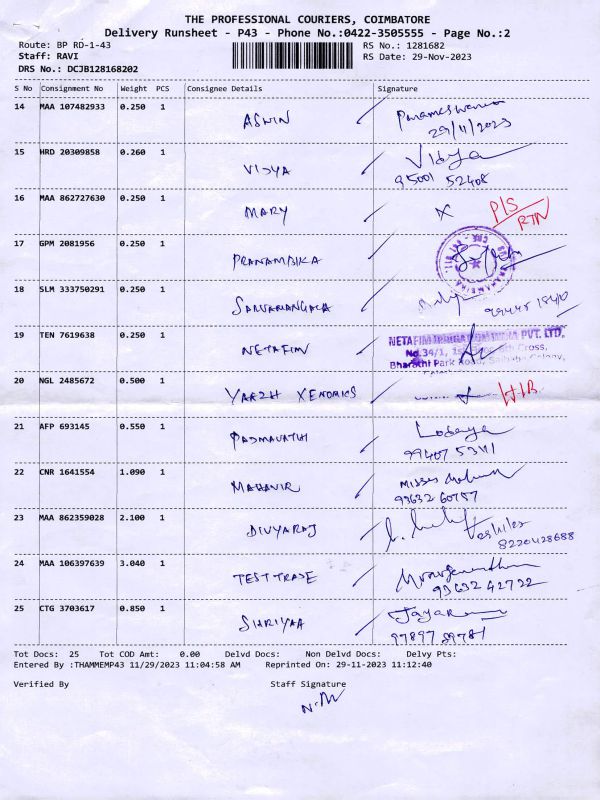 THE PROFESSIONAL COURIERS, COIMBATORE
Delivery Runsheet - P43 - Phone No.:0422-3505555 - Page No.:2
Route: BP RD-1-43 RS No.: 1281682
Staff: RAVI RS Date: 29-Nov-2023
DRS No.: DCJB128168202
S No Consignment No Weight PCS Consignee Details Signature
14 MAA 107482933 0.250 1 ASWIN Parameswaran
29/11/2023
15 HRD 20309858 0.260 1 VIDYA Vidya
95001 52408
16 MAA 862727630 0.250 1 MARY X P/S
RTN
17 GPM 2081956 0.250 1 PRANAMBIKA
18 SLM 333750291 0.250 1 SARVAMANGALA
99445 18410
19 TEN 7619638 0.250 1 NETAFIM NETAFIM IRRIGATION INDIA PVT. LTD.
No.34/1, 1st Cross,
Bharathi Park Road, Saibaba Colony,
20 NGL 2485672 0.500 1 YARZH XENOMICS
21 AFP 693145 0.550 1 PADMAVATHI
99407 53411
22 CNR 1641554 1.090 1 MAHAVIR
93632 60757
23 MAA 862359028 2.100 1 DIVYARAJ
8220428688
24 MAA 106397639 3.040 1 TEST TRADE
93632 42722
25 CTG 3703617 0.850 1 SHRIYAA
97897 59781
Tot Docs: 25 Tot COD Amt: 0.00 Delvd Docs: Non Delvd Docs: Delvy Pts:
Entered By :THAMMEMP43 11/29/2023 11:04:58 AM Reprinted On: 29-11-2023 11:12:40
Verified By Staff Signature